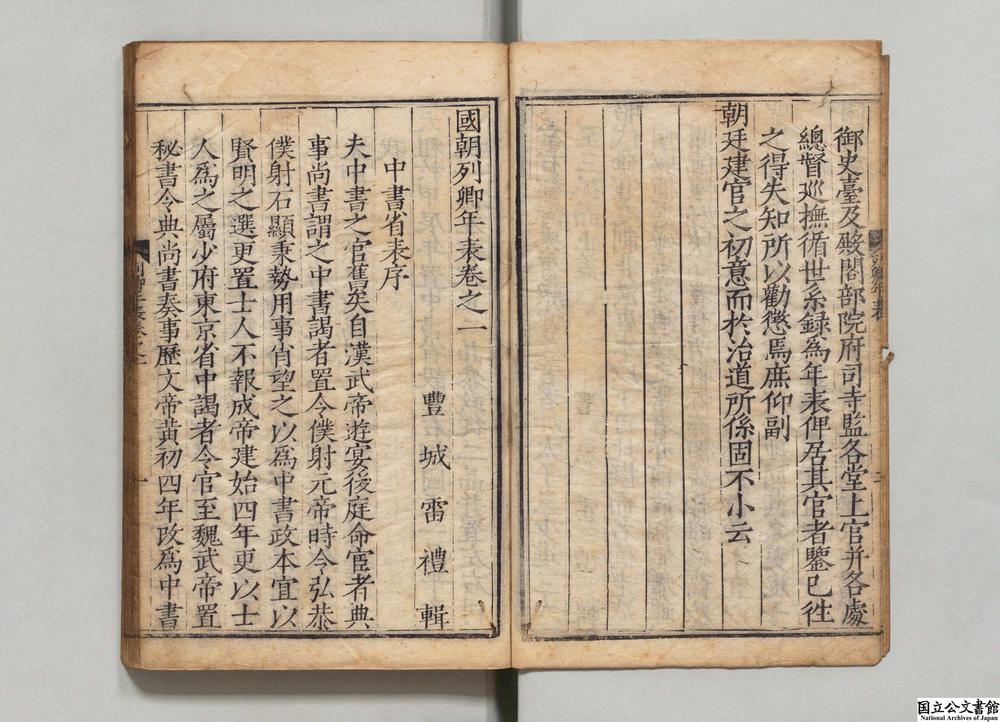 御史臺及殿閣部院府司寺監各堂上官并各處
總督巡撫循世系録為年表俾居其官者鑒已徃
之得失知所以勸懲焉庶仰副
朝廷建官之初意而於治道所係固不小云
國朝列卿年表卷之一
豐城雷禮輯
中書省表序
夫中書之官舊矣自漢武帝遊宴後庭命宦者典
事尚書謂之中書謁者置令僕射元帝時令弘恭
僕射石顯秉勢用事肖望之以為中書政本宜以
賢明之選更置士人不報成帝建始四年更以士
人為之屬少府東京省中謁者令官至魏武帝置
秘書令典尚書奏事歷文帝黃初四年改為中書
国立公文書館
National Archives of Japan